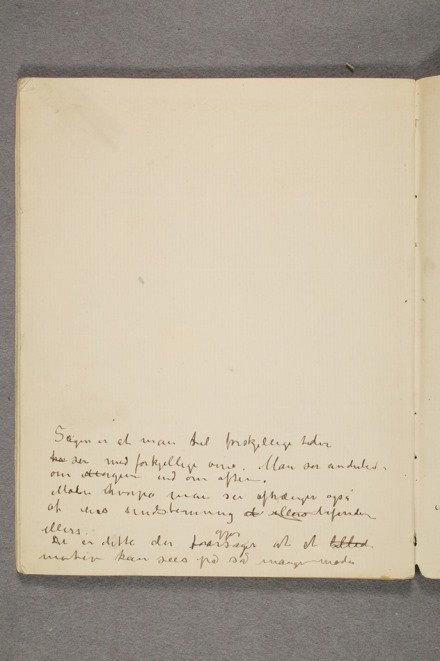 Sagen er at man til forskjellige tider
ser med forskjellige øine. Man ser anderled-
om morgen end om aften.
Måden hvorpå man ser afhænger også
af ens sindstemning
ellers.
De er dette der gjør at et billed
motiv kan sees på så mange måder